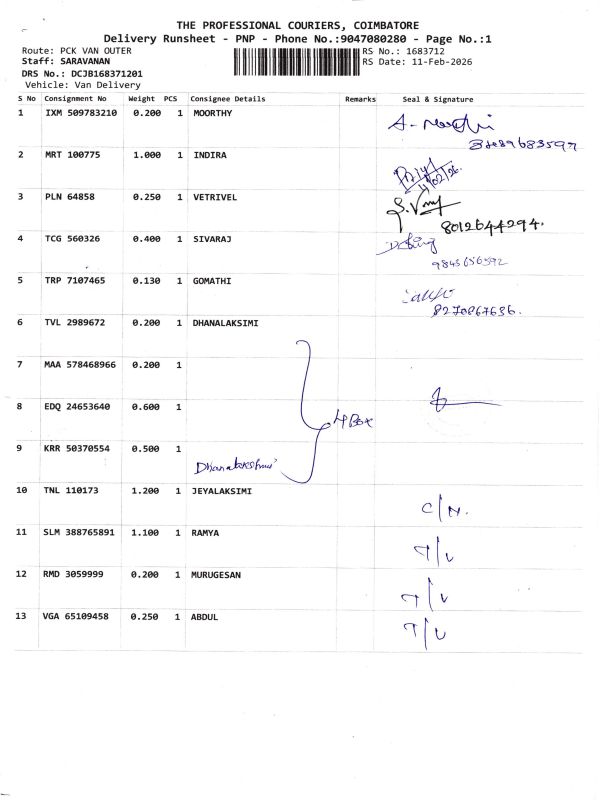 THE PROFESSIONAL COURIERS, COIMBATORE
Delivery Runsheet - PNP - Phone No.:9047080280 - Page No.:1
Route: PCK VAN OUTER
RS No.: 1683712
Staff: SARAVANAN
RS Date: 11-Feb-2026
DRS No.: DCJB168371201
Vehicle: Van Delivery
S No Consignment No Weight PCS Consignee Details Remarks Seal & Signature
1 IXM 509783210 0.200 1 MOORTHY
2 MRT 100775 1.000 1 INDIRA
3 PLN 64858 0.250 1 VETRIVEL
8012644294.
4 TCG 560326 0.400 1 SIVARAJ
9843656592
5 TRP 7107465 0.130 1 GOMATHI
8270867636.
6 TVL 2989672 0.200 1 DHANALAKSIMI
7 MAA 578468966 0.200 1
8 EDQ 24653640 0.600 1
4 Box
9 KRR 50370554 0.500 1
Dhanalakshmi
10 TNL 110173 1.200 1 JEYALAKSIMI C/N.
11 SLM 388765891 1.100 1 RAMYA T/L
12 RMD 3059999 0.200 1 MURUGESAN T/L
13 VGA 65109458 0.250 1 ABDUL T/L